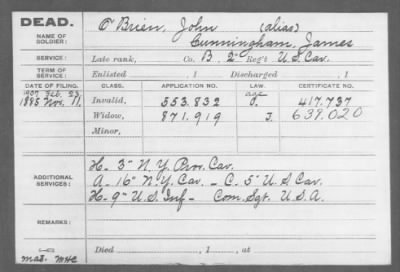 DEAD.
NAME OF SOLDIER: O'Brien, John (alias) Cunningham, James
SERVICE: Late rank, Co. B, 2" Reg't U.S. Cav.
TERM OF SERVICE: Enlisted , 1 Discharged , 1
DATE OF FILING. CLASS. APPLICATION NO. LAW. CERTIFICATE NO.
1907 Feb. 23 age
1885 Nov. 11. Invalid, 553.832 417.737
Widow, 871.919 J. 639.020
Minor,
ADDITIONAL SERVICES:
H - 3" N.Y. Prov. Cav.
A - 16" N.Y. Cav. - C. 5" U.S. Cav.
H - 9" U.S. Inf - Com. Sgt. U.S.A.
REMARKS:
Died , 1 , at